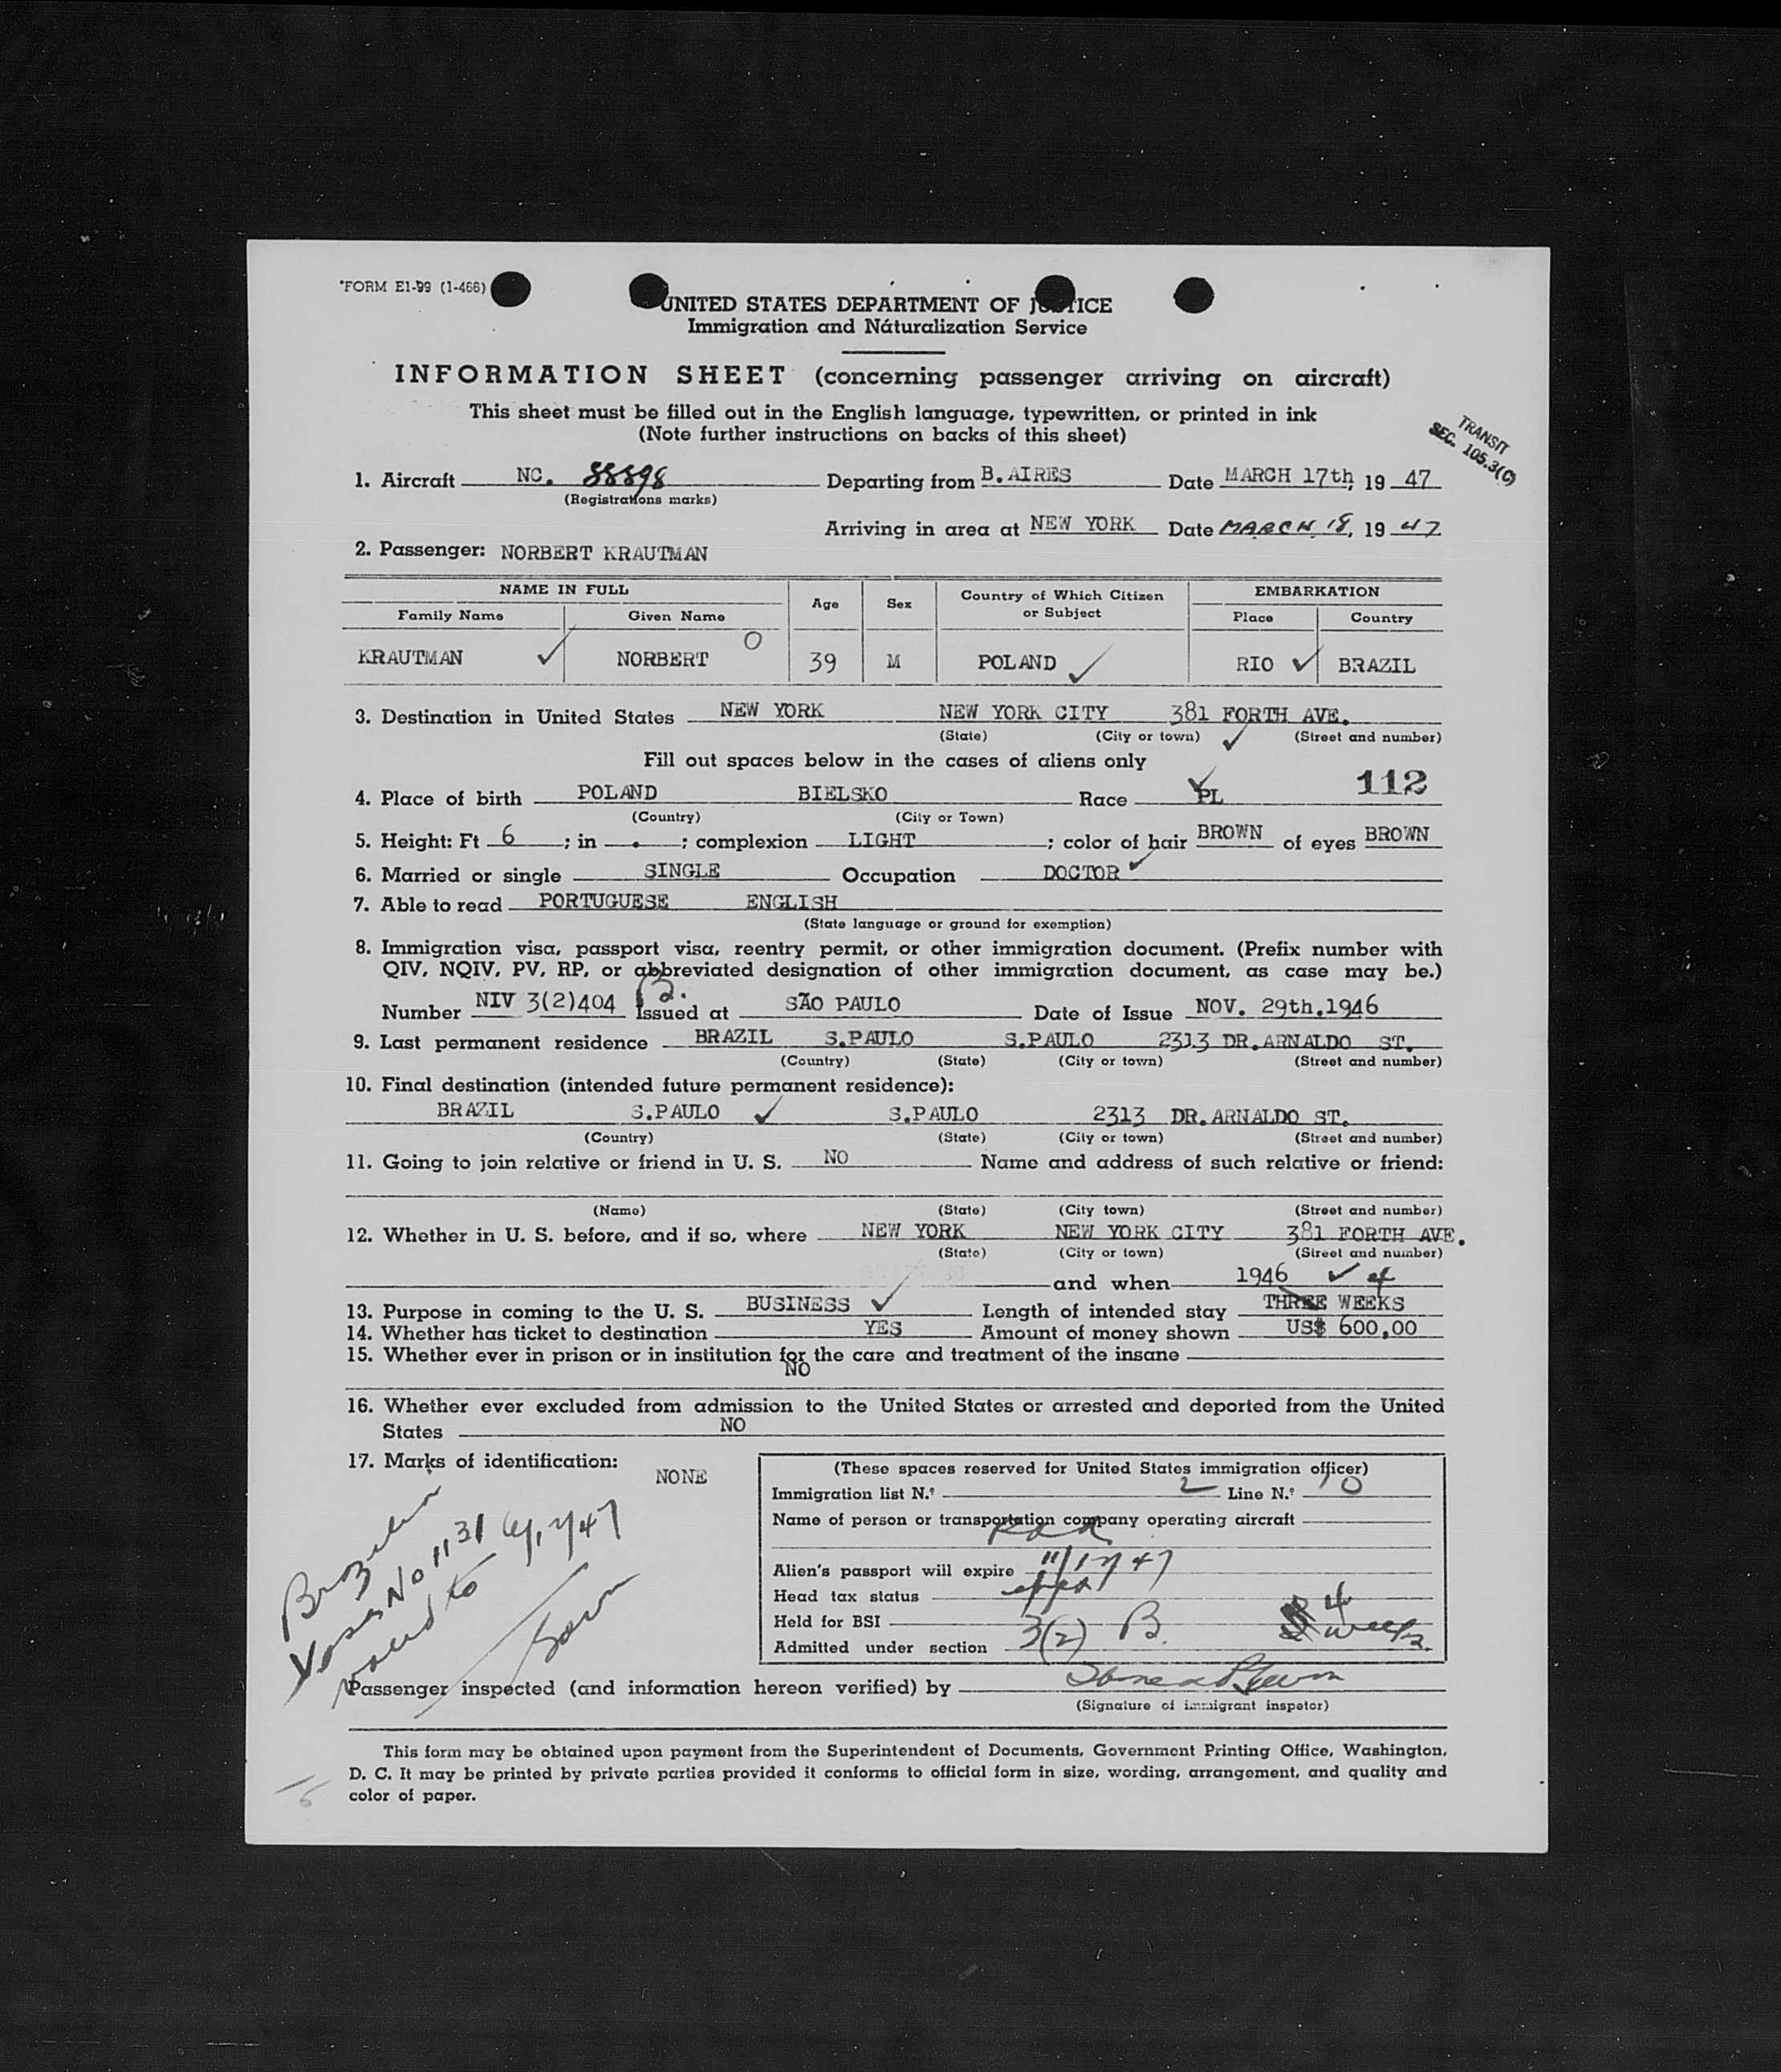 *FORM E1-99 (1-466)
UNITED STATES DEPARTMENT OF JUSTICE
Immigration and Naturalization Service
INFORMATION SHEET (concerning passenger arriving on aircraft)
This sheet must be filled out in the English language, typewritten, or printed in ink
(Note further instructions on backs of this sheet)
TRANSIT
SEC. 105.3(C)
1. Aircraft NC. 88898 Departing from B.AIRES Date MARCH 17th, 19 47
(Registrations marks)
Arriving in area at NEW YORK Date MARCH 18, 19 47
2. Passenger: NORBERT KRAUTMAN
NAME IN FULL Age Sex Country of Which Citizen or Subject EMBARKATION
Family Name Given Name Place Country
KRAUTMAN NORBERT O 39 M POLAND RIO BRAZIL
3. Destination in United States NEW YORK NEW YORK CITY 381 FORTH AVE.
(State) (City or town) (Street and number)
Fill out spaces below in the cases of aliens only
112
4. Place of birth POLAND BIELSKO Race PL
(Country) (City or Town)
5. Height: Ft 6 ; in . ; complexion LIGHT ; color of hair BROWN of eyes BROWN
6. Married or single SINGLE Occupation DOCTOR
7. Able to read PORTUGUESE ENGLISH
(State language or ground for exemption)
8. Immigration visa, passport visa, reentry permit, or other immigration document. (Prefix number with
QIV, NQIV, PV, RP, or abbreviated designation of other immigration document, as case may be.)
Number NIV 3(2)404 B. Issued at SÃO PAULO Date of Issue NOV. 29th.1946
9. Last permanent residence BRAZIL S.PAULO S.PAULO 2313 DR.ARNALDO ST.
(Country) (State) (City or town) (Street and number)
10. Final destination (intended future permanent residence):
BRAZIL S.PAULO S.PAULO 2313 DR.ARNALDO ST.
(Country) (State) (City or town) (Street and number)
11. Going to join relative or friend in U. S. NO Name and address of such relative or friend:
(Name) (State) (City town) (Street and number)
12. Whether in U. S. before, and if so, where NEW YORK NEW YORK CITY 381 FORTH AVE.
(State) (City or town) (Street and number)
and when 1946
13. Purpose in coming to the U. S. BUSINESS Length of intended stay THREE WEEKS
14. Whether has ticket to destination YES Amount of money shown US$ 600,00
15. Whether ever in prison or in institution for the care and treatment of the insane
NO
16. Whether ever excluded from admission to the United States or arrested and deported from the United
States NO
17. Marks of identification: NONE
(These spaces reserved for United States immigration officer)
Immigration list N.º 2 Line N.º 10
Name of person or transportation company operating aircraft
Alien's passport will expire 11/17/47
Head tax status
Held for BSI
Admitted under section 3(2) B. 4 weeks.
Brazilian
No 1131
Passenger inspected (and information hereon verified) by
(Signature of immigrant inspetor)
This form may be obtained upon payment from the Superintendent of Documents, Government Printing Office, Washington,
D. C. It may be printed by private parties provided it conforms to official form in size, wording, arrangement, and quality and
color of paper.